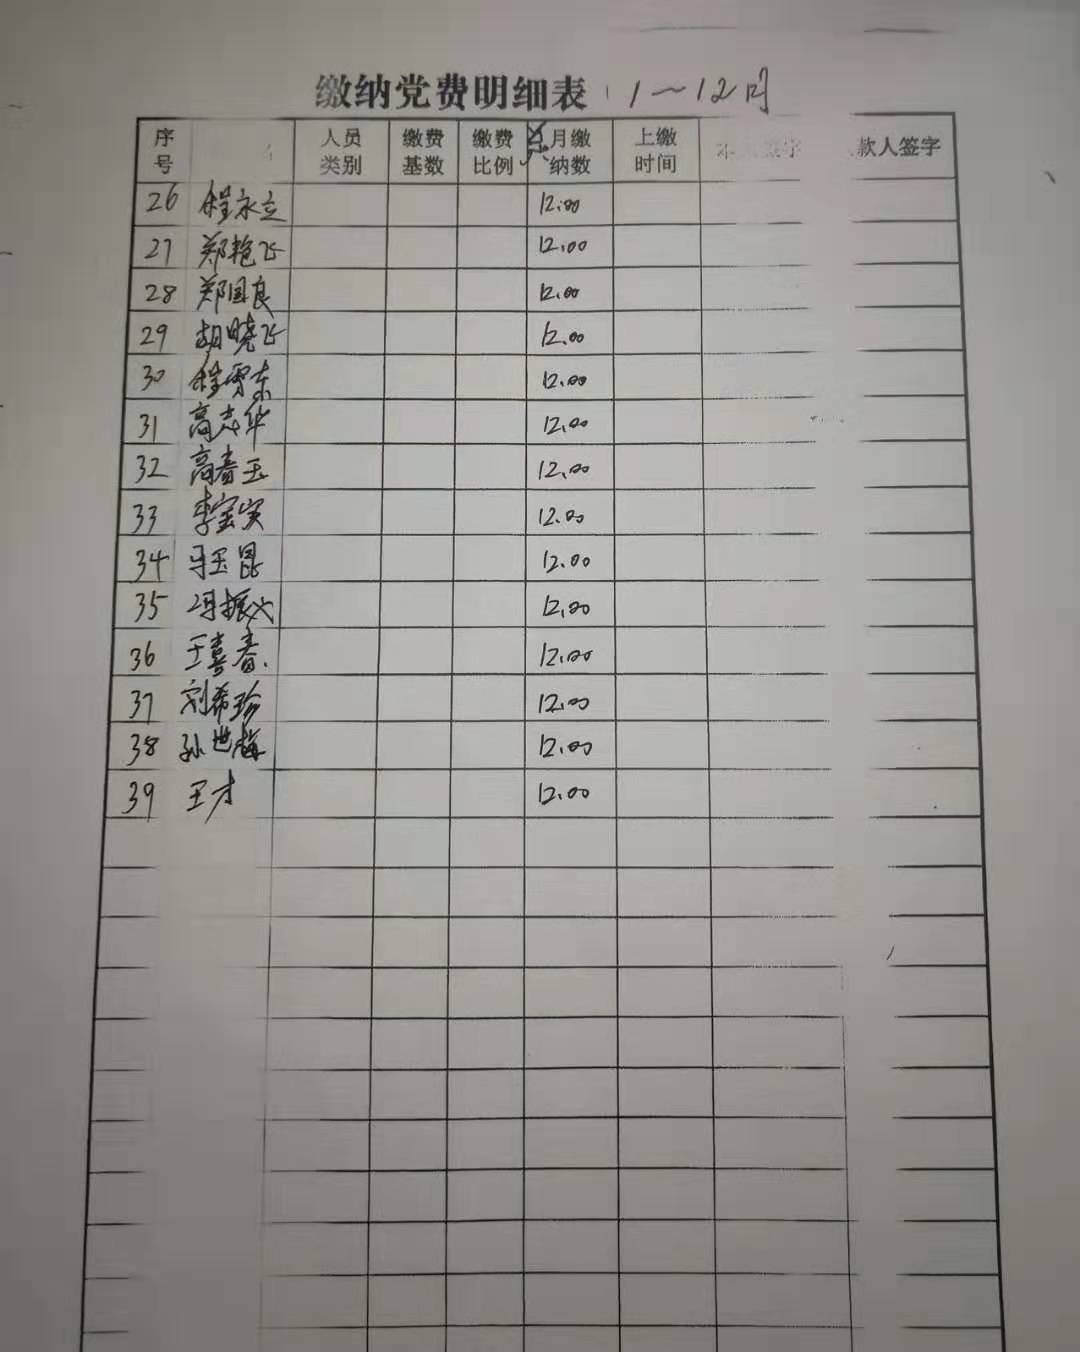 缴纳党费明细表 1~12月
序号 人员类别 缴费基数 缴费比例 总月缴纳数 上缴时间 本人签字 款人签字
26 程永立 12.00
27 郑艳飞 12.00
28 郑国良 12.00
29 胡晓飞 12.00
30 程雪东 12.00
31 高志华 12.00
32 高春玉 12.00
33 李宝实 12.00
34 马玉昆 12.00
35 冯振火 12.00
36 王喜春 12.00
37 刘希珍 12.00
38 孙世梅 12.00
39 王才 12.00